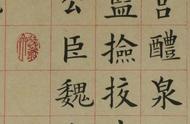 醴泉
監撿挍
公臣魏